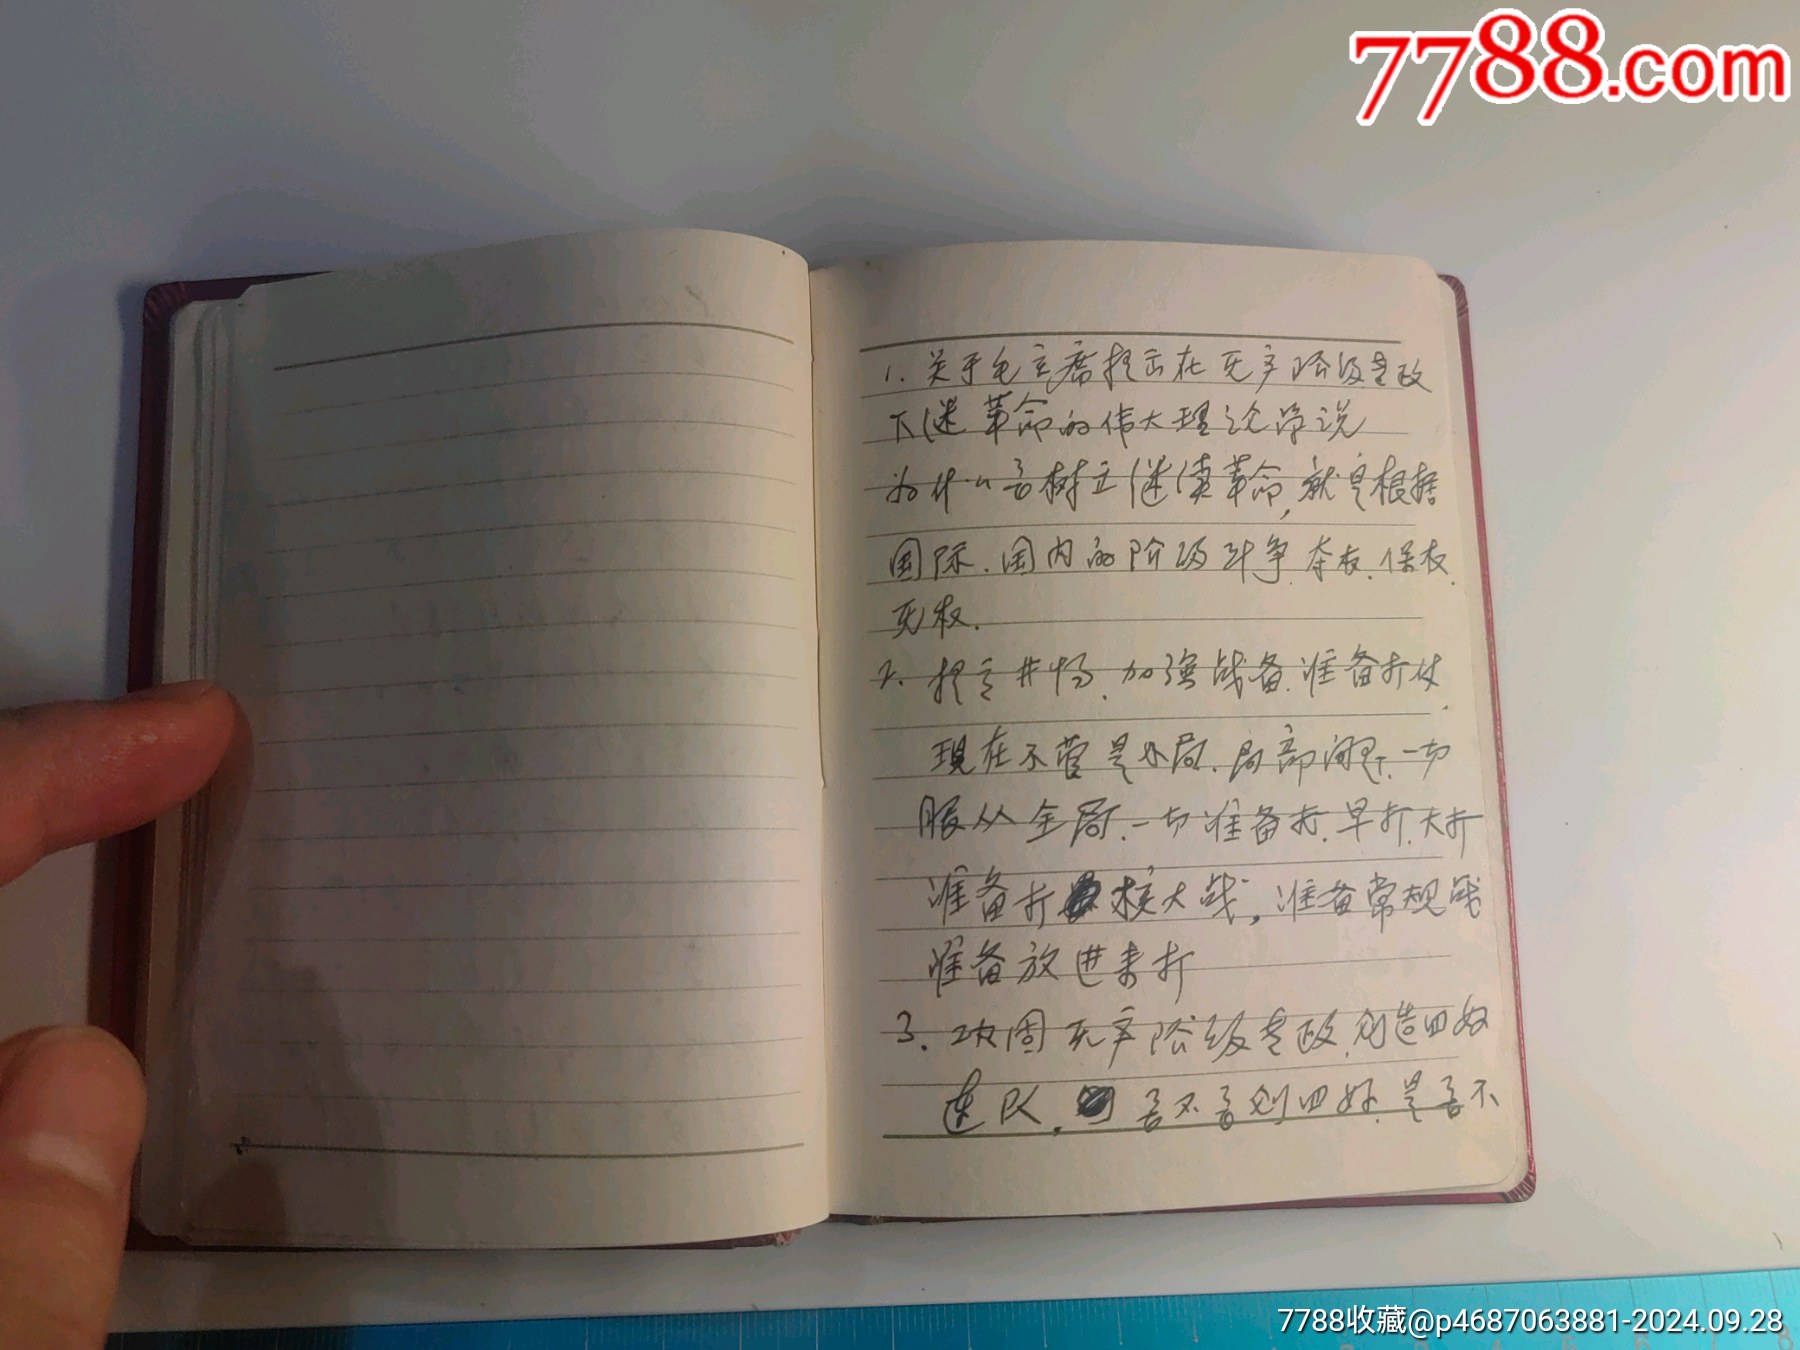 7788.com
1. 关于毛主席提出在无产阶级专政
下继革命的伟大理论学说
为什么要树立继续革命,就是根据
国际.国内的阶级斗争.夺权.保权.
无权.
2. 提高 加强战备.准备打仗.
现在不管是小局.局部问题.一切
服从全局.一切准备打.早打.大打
准备打核大战,准备常规战
准备放进来打
3. 巩固无产阶级专政.创造四好
连队. 要不要创四好.是要不
7788收藏@p4687063881-2024.09.28